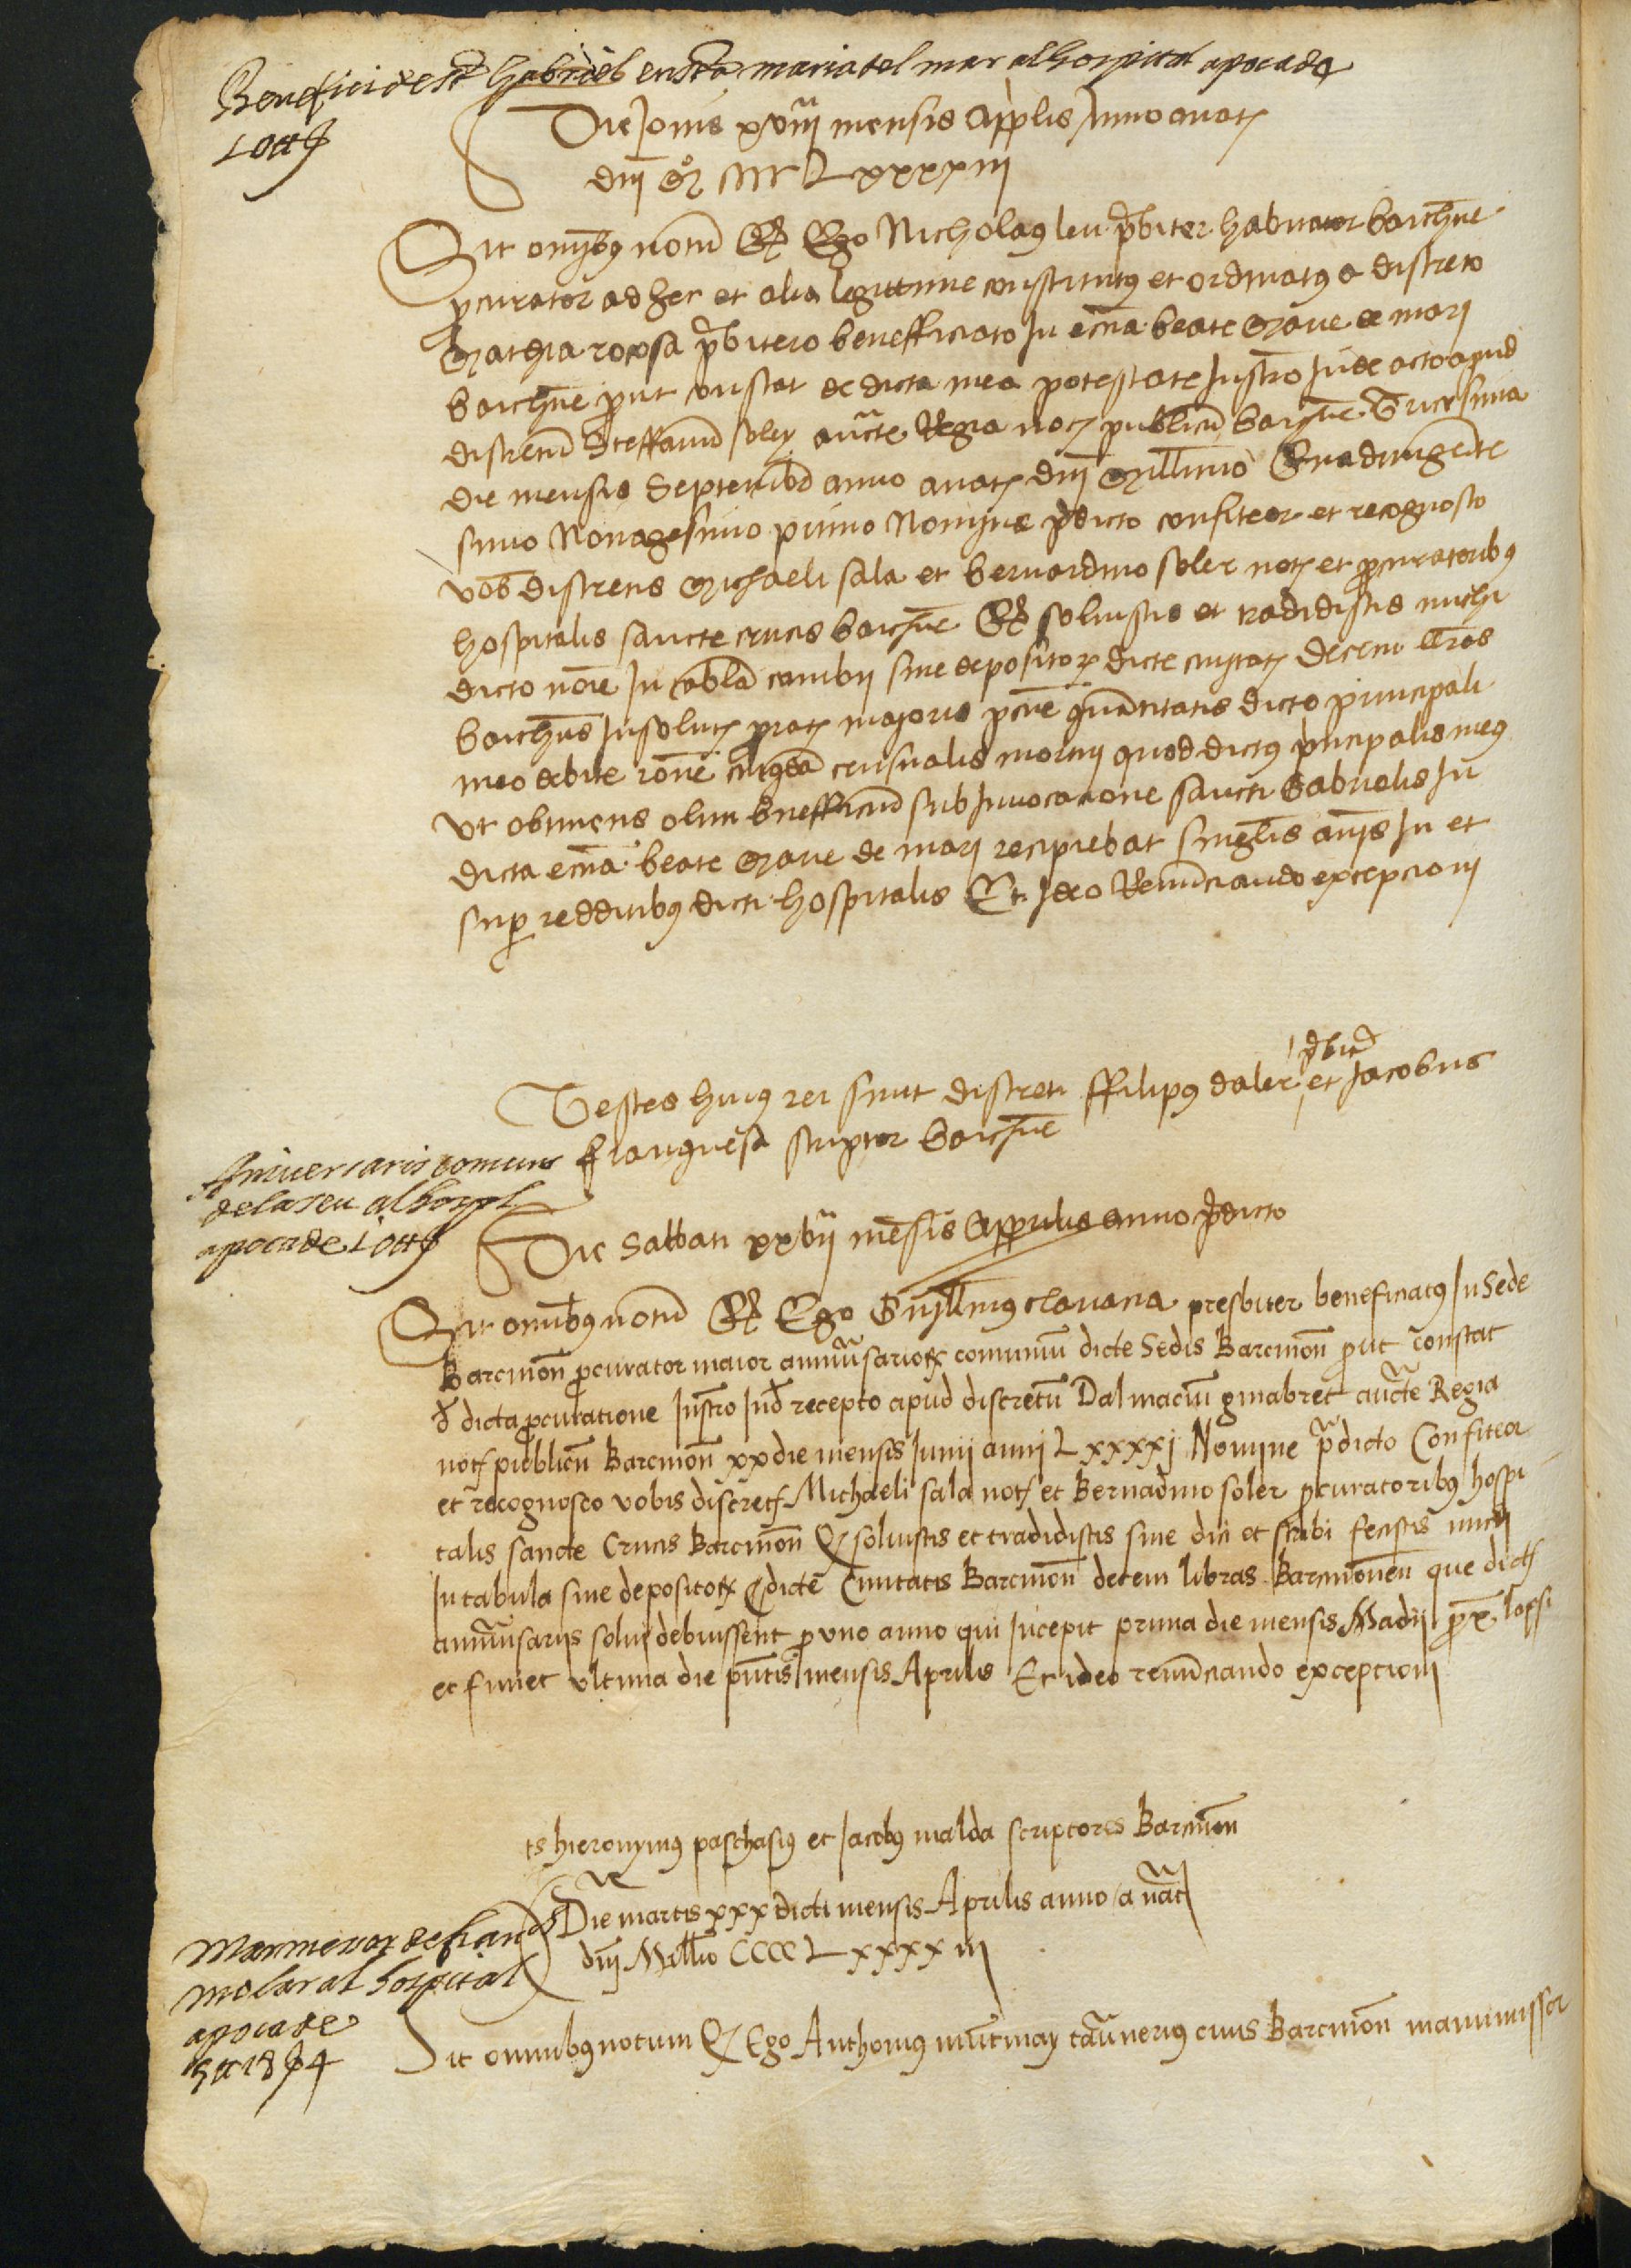 Benefici de St Gabriel en Sta maria del mar al hospital apoca de
10 ℔ ʃ
Die Jovis xviii mensis Applis Anno a natꝭ
dni M° CCCC Lxxxxiii
Sit omībus notū Qd Ego Nicholaus leu p̄biter habitator barchn̄e
p̄curator ad hec et alia legittime constitutus et ordinatus a discreto
Mathia rossa p̄bitero benefficiato In ecc̄ia beate Marie de mari
barchn̄e prout constat de dicta mea potestate Instr̄o Inde acto apud
discretū Steffanū soley auct̄e Regia notꝭ publicū barchn̄e Tricesima
die mensis Septembr̄ anno a natꝭ dni Millimo Quadringēte
simo Nonagesimo primo Nomine p̄dicto confiteor et recognosco
vob̄ discretis Michaeli sala et bernardino soler notꝭ et p̄curatoribus
hospitalis sancte crucis barchn̄e Qd solvistis et tradidistis michi
dicto noīe In tabla cambii sive depositoꝝ dicte civitatꝭ decem lībras
barchn̄s In solutꝭ pratꝭ majoris pc̄nie quantitatis dicto principali
meo debite rōne cuiusdā censualis mortui quod dictus principalis meus
ut obtinens olim benefficiū sub Invocatione sancti Gabrielis In
dicta ecc̄ia beate Marie de mari recipiebat singulis annis In et
sup redditibus dicti hospitalis Et Ideo Renūnciando excepcioni
Testes huius rei sunt discreti ffilipus daler p̄bit̄ et Jacobus
franquesa scriptor barchn̄e
Aniversaris comuns
de la seu al hospl
apoca de 10 ℔ ʃ
Die Sabbati xxvii mēsis Apprilis anno p̄dicto
Sit omībus notū Qd Ego Guillm̄us clavaria presbiter beneficiatus In Sede
Barcinon̄ p̄curator maior annīv̄sarioꝝ comuniū dicte Sedis Barcinon̄ prout constat
d̄ dicta p̄curatione Instr̄o Ind̄ recepto apud discretū Dalmaciū ginabret auct̄e Regia
notꝭ publicū Barcinon̄ xx die mensis Junii anni Lxxxxi Nomine p̄dicto Confiteor
et recognosco vobis discretꝭ Michaeli sala notꝭ et Bernadino soler p̄curatoribus hospi
talis sancte Crucis Barcinon̄ Qꝭ solvistis et tradidistis sive dici et scribi fecistis michi
In tabula sive depositoꝝ p̄dicte Civitatis Barcinon̄ decem libras Barcinonen̄ que dictꝭ
annīv̄sariis solvi debuissent p̄ uno anno qui Incepit prima die mensis Madii p̄x̄ lapsi
et finiet ultima die pn̄tis mensis Aprilis Et ideo renūnciando exceptioni
ts hieronymus paschasius et Jacobus malda scriptores Barcinon̄
Die martis xxx dicti mensis Aprilis anno a nat̄
dni Mill̄io CCCC Lxxxxiii
Marmessor de
molar al hospital
apoca de
5 ℔ 18 ʃ 4
Sit omnibus notum Qꝭ Ego Anthonius muntmay tav̄nerius civis Barcinon̄ manumissor